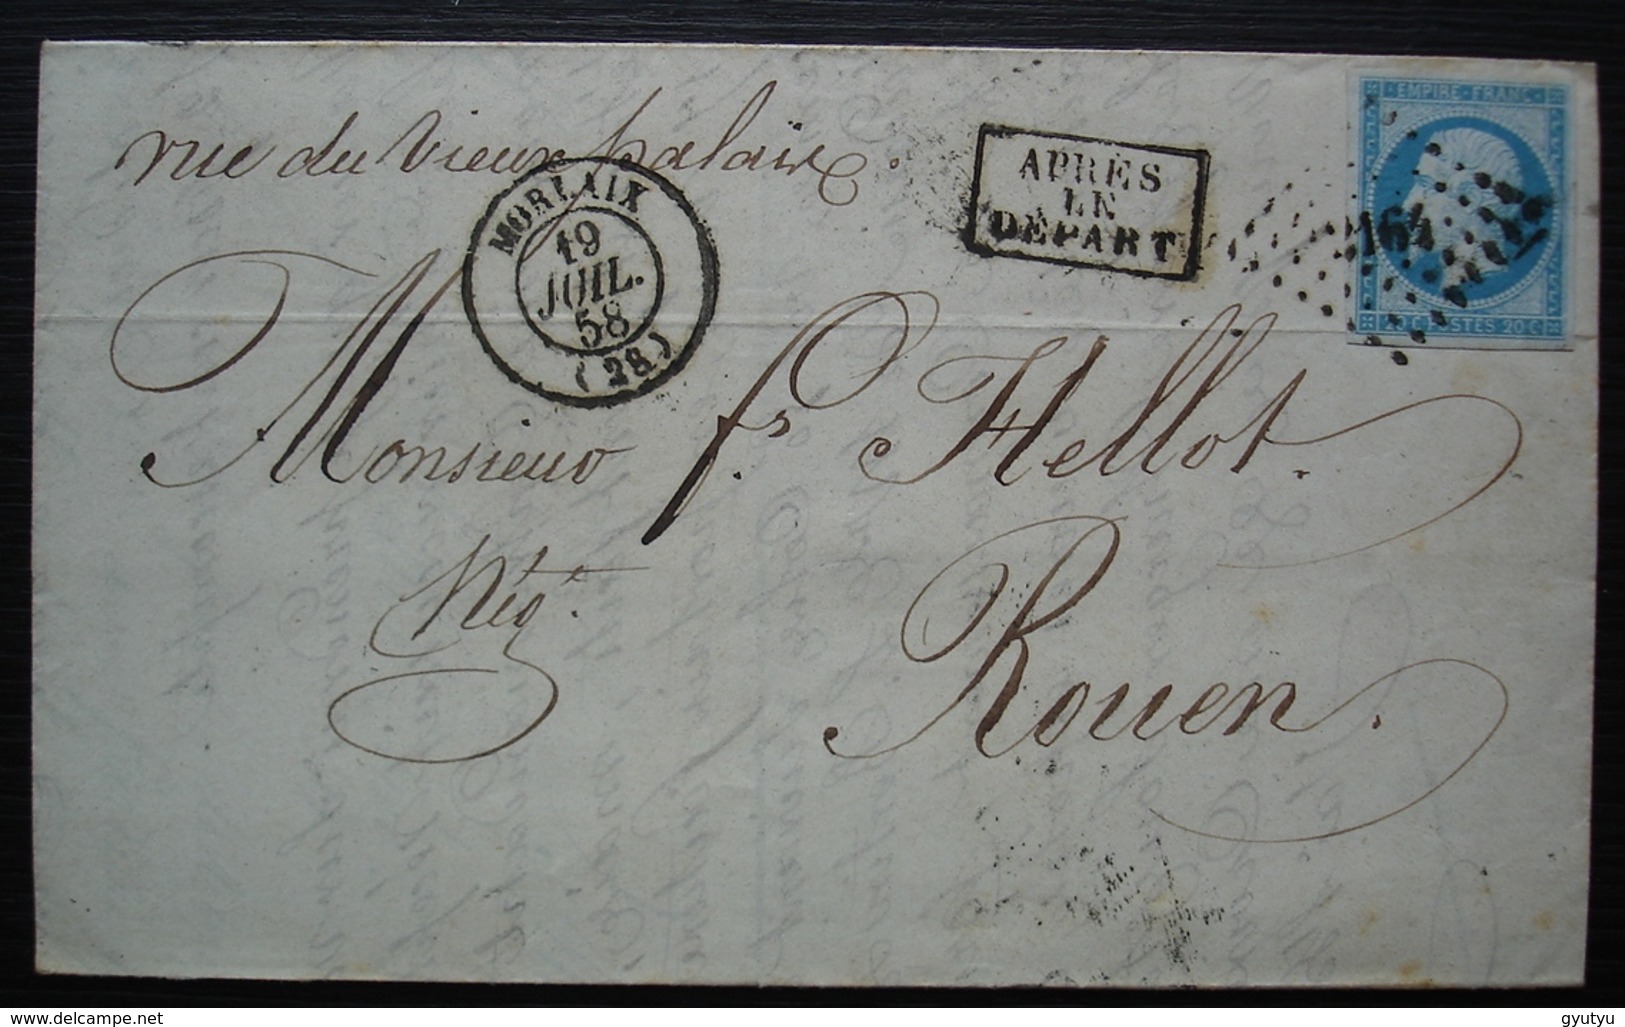 rue du Vieux palais.
MORLAIX
19
JUIL.
58
(28)
APRÈS
LE
DÉPART
EMPIRE FRANC
20 C POSTES 20 C
Monsieur fs Hellot.
Négt.
Rouen.
www.delcampe.net
gyutyu